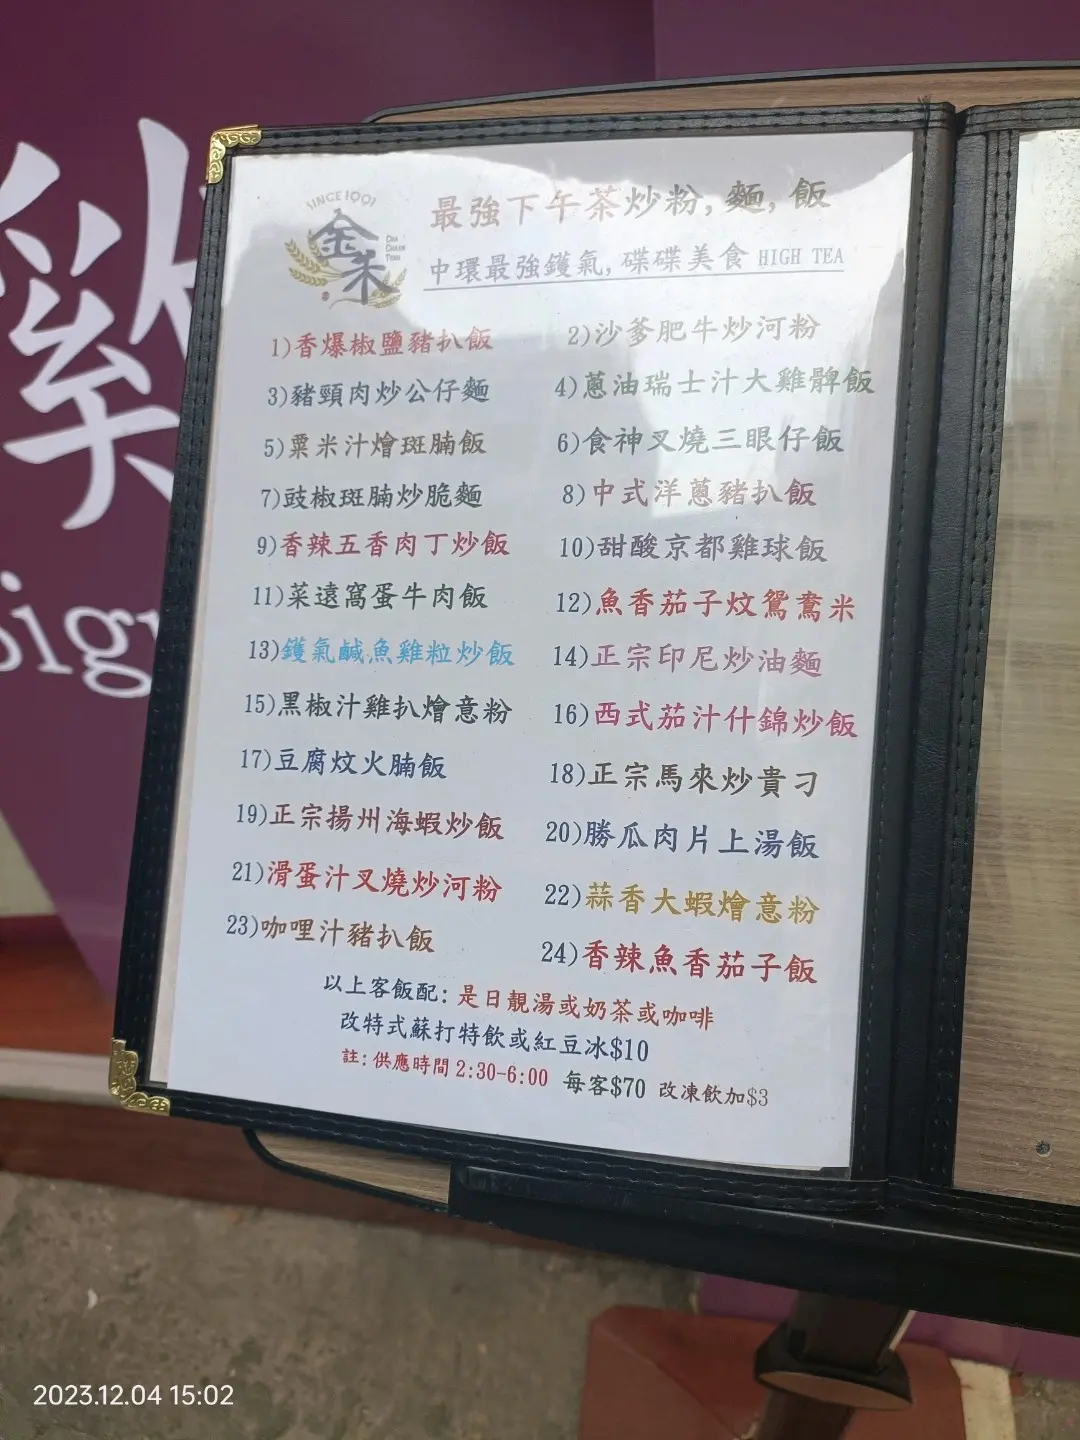 SINCE 1991
金禾
CHA
CHAAN
TENG
最強下午茶炒粉, 麵, 飯
中環最強鑊氣, 碟碟美食 HIGH TEA
1)香爆椒鹽豬扒飯
2)沙爹肥牛炒河粉
3)豬頸肉炒公仔麵
4)蔥油瑞士汁大雞髀飯
5)粟米汁燴斑腩飯
6)食神叉燒三眼仔飯
7)豉椒斑腩炒脆麵
8)中式洋蔥豬扒飯
9)香辣五香肉丁炒飯
10)甜酸京都雞球飯
11)菜遠窩蛋牛肉飯
12)魚香茄子炆鴛鴦米
13)鑊氣鹹魚雞粒炒飯
14)正宗印尼炒油麵
15)黑椒汁雞扒燴意粉
16)西式茄汁什錦炒飯
17)豆腐炆火腩飯
18)正宗馬來炒貴刁
19)正宗揚州海蝦炒飯
20)勝瓜肉片上湯飯
21)滑蛋汁叉燒炒河粉
22)蒜香大蝦燴意粉
23)咖哩汁豬扒飯
24)香辣魚香茄子飯
以上客飯配: 是日靚湯或奶茶或咖啡
改特式蘇打特飲或紅豆冰$10
註: 供應時間 2:30-6:00 每客$70 改凍飲加$3
2023.12.04 15:02